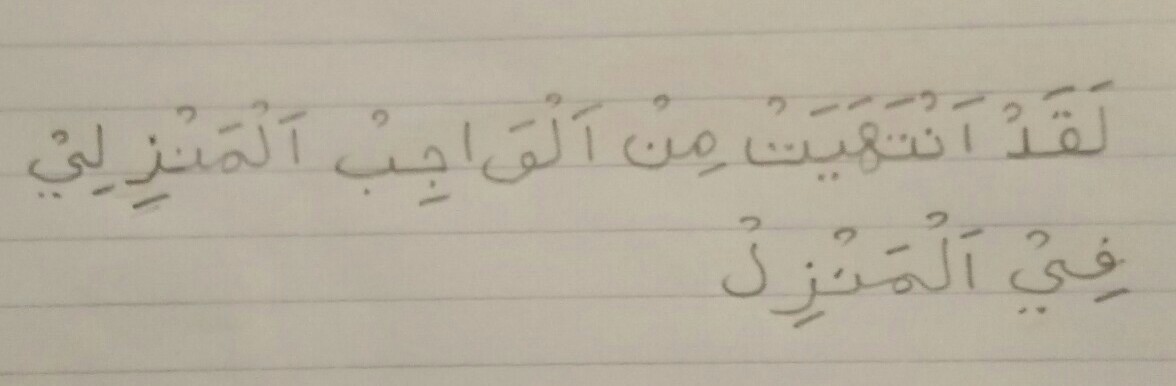 لَقَدْ اَنْتَهَيَتْ مِنْ اَلْوَاجِبْ اَلْمَنْزِلِيْ
فِيْ اَلْمَنْزِلْ